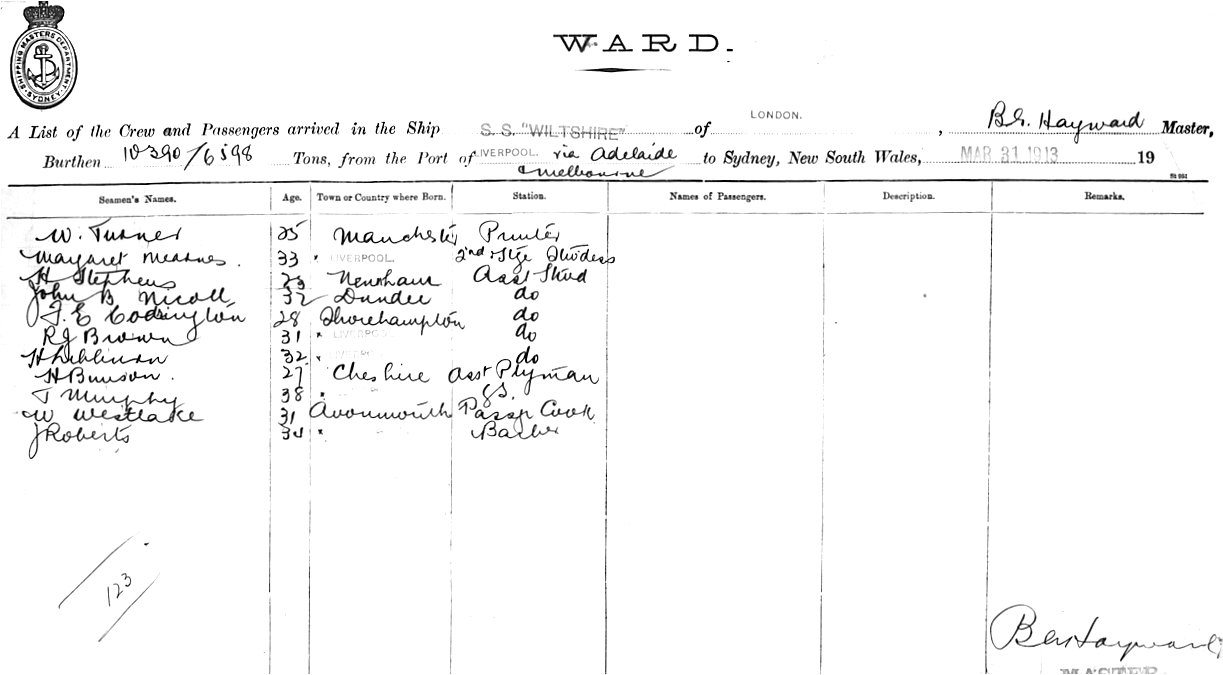 SHIPPING MASTERS DEPARTMENT
SYDNEY
WARD.
A List of the Crew and Passengers arrived in the Ship S. S. "WILTSHIRE" of LONDON. , B.G. Hayward Master,
Burthen 10390/6598 Tons, from the Port of LIVERPOOL. via Adelaide to Sydney, New South Wales, MAR 31 1913 19
& Melbourne
Seamen's Names. Age. Town or Country where Born. Station. Names of Passengers. Description. Remarks.
W. Turner 25 Manchester Printer
Margaret Mearnes. 33 " LIVERPOOL. 2nd Stge Stwdess
H Stephens 23 Asst Stwd
John B Nicoll 32 Dundee do
F. E Codrington 28 do
RJ Brown 31 " LIVERPOOL do
32 " LIVERPOOL do
H Bunson. 27 Cheshire Asst Ptyman
T Murphy 38 " G.S.
W Westlake 31 Avonmouth Passgr Cook
J Roberts 34 " Barber
123
BG Hayward
MASTER